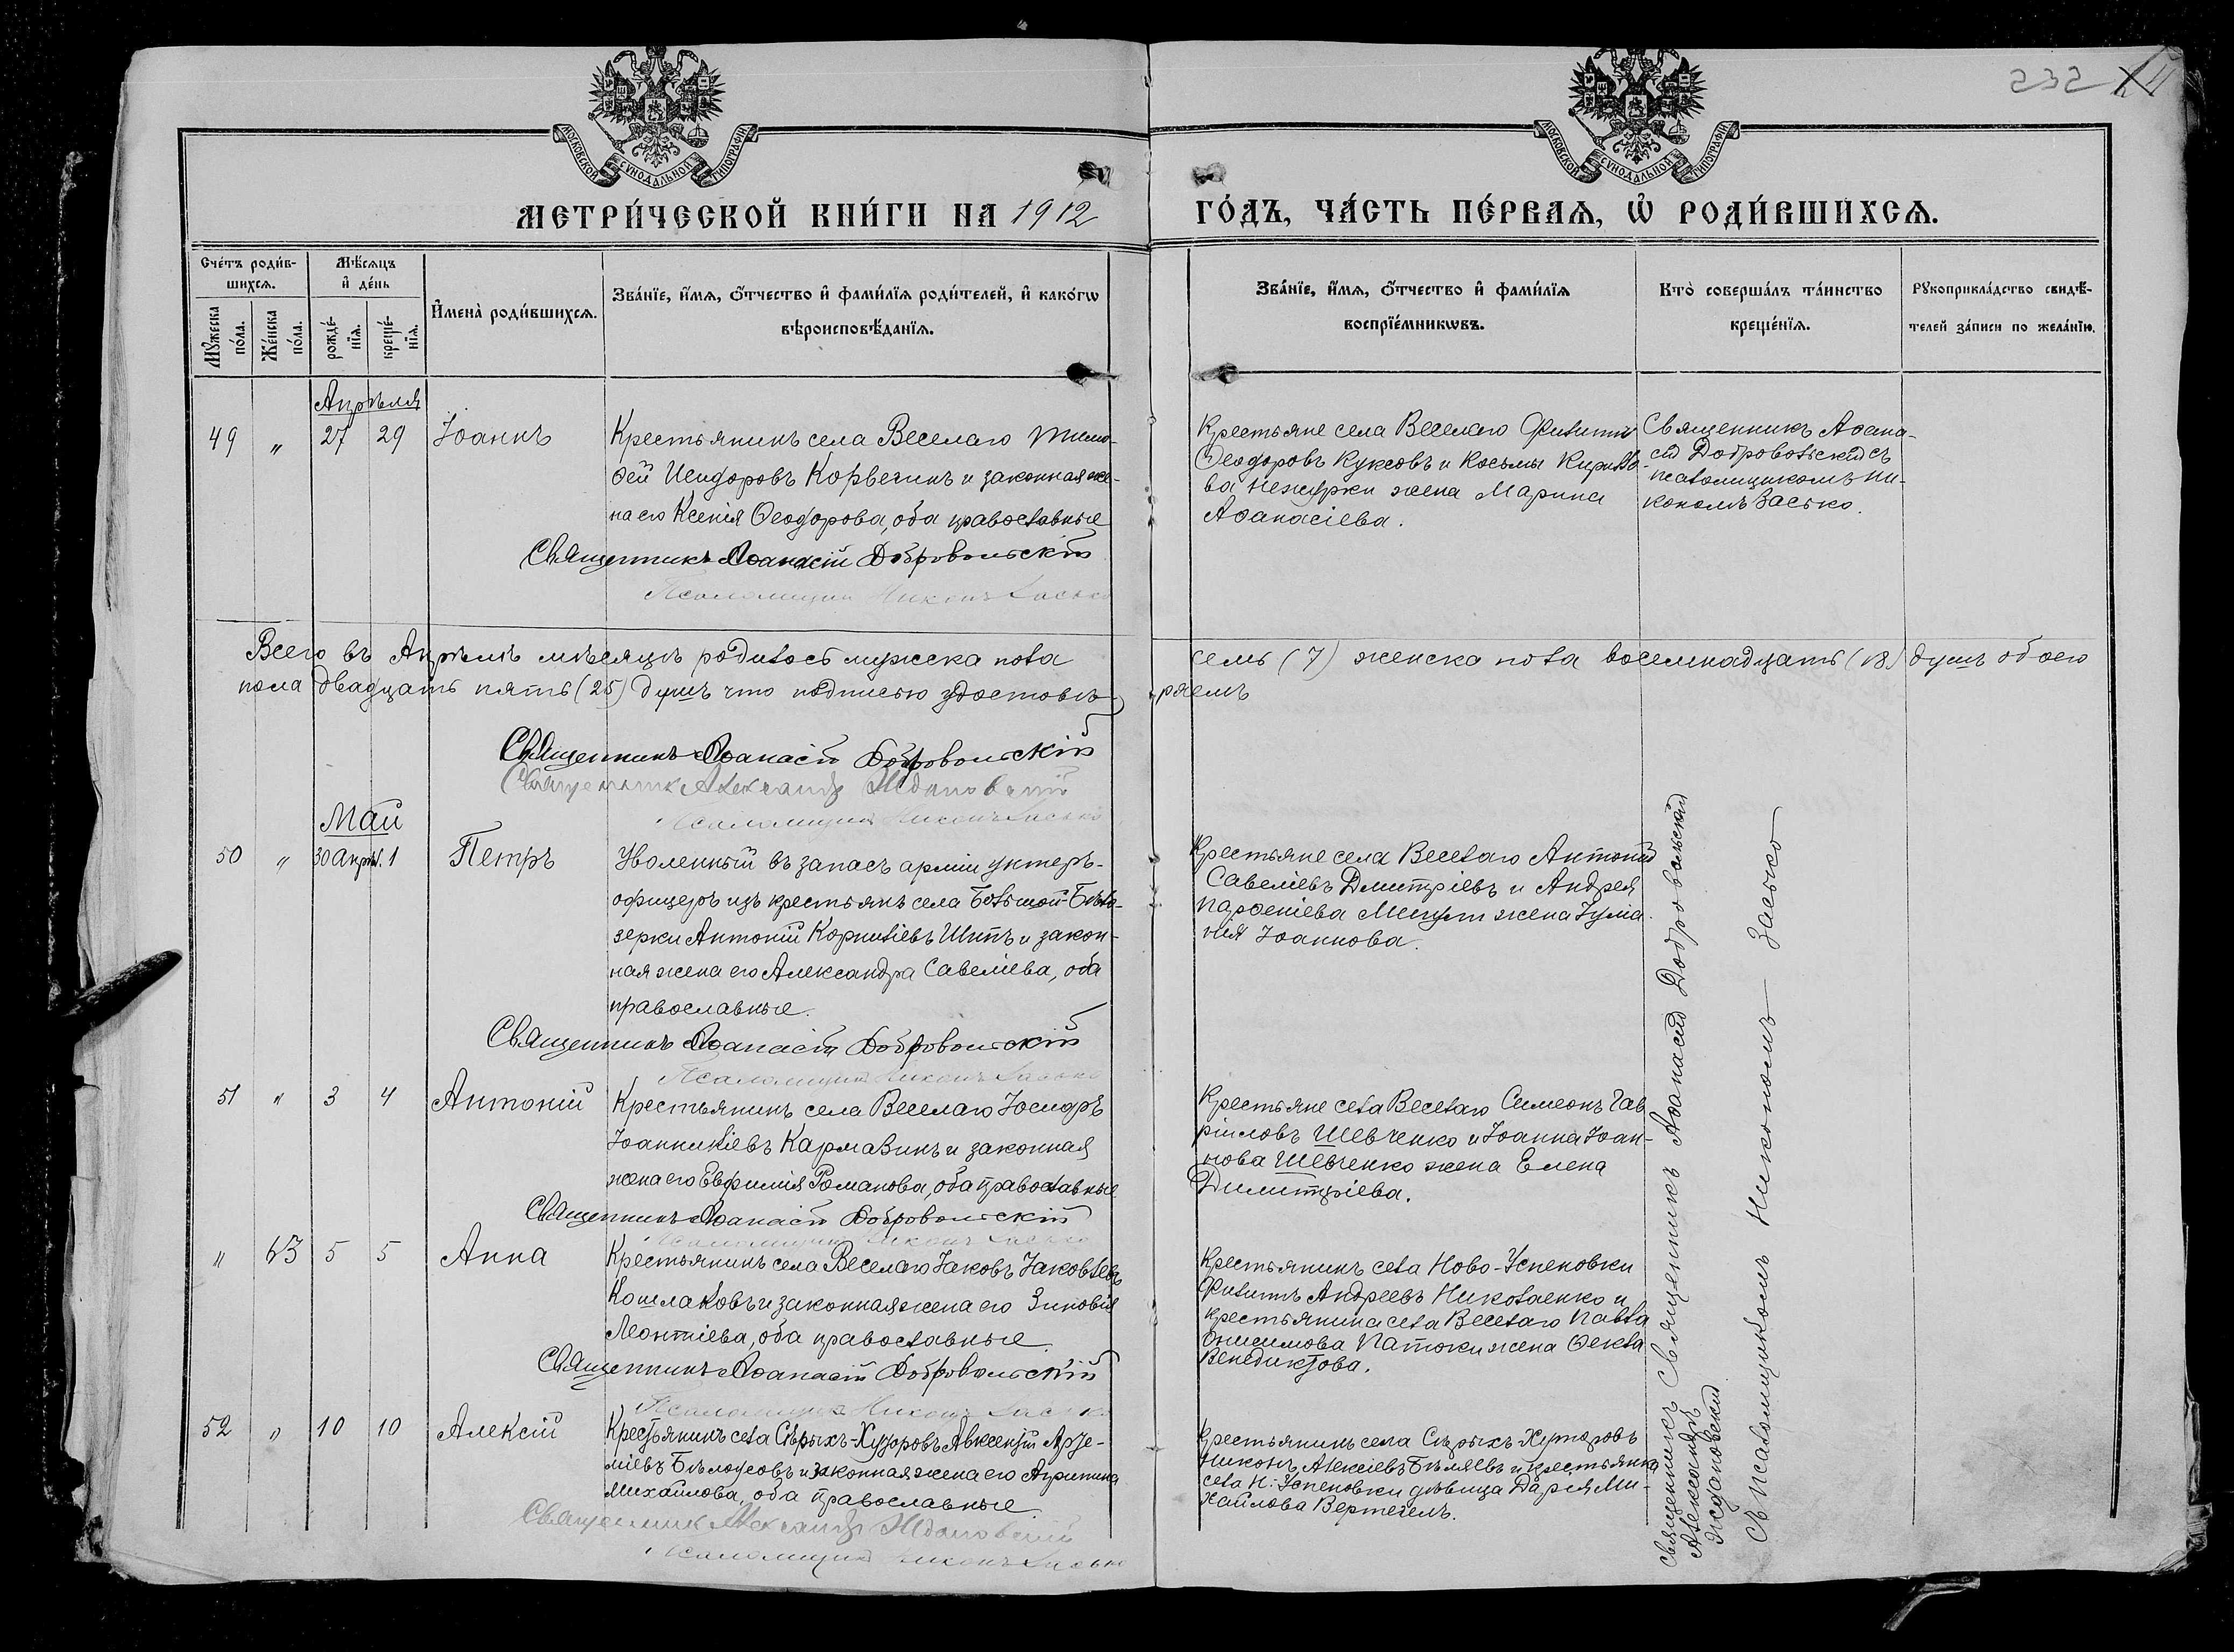 232
МОСКОВСКОЙ СУНОДАЛЬНОЙ ТИПОГРАФІИ
МОСКОВСКОЙ СУНОДАЛЬНОЙ ТИПОГРАФІИ
МЕТРИ́ЧЕСКОЙ КНИ́ГИ НА 1912
ГО́ДЪ, ЧА́СТЬ ПЕ́РВАѦ, Ѡ҆ РОДИ́ВШИХСѦ.
Сче́тъ роди́в-
шихсѧ.
Мꙋжеска по́ла.
Же́нска по́ла.
Мѣ́сѧцъ
и҆ де́нь
рожде́-
нїѧ.
креще́-
нїѧ.
И҆мена̀ роди́вшихсѧ.
Зва́нїе, и҆́мѧ, ѻ҆́тчество и҆ фами́лїѧ роди́телей, и҆ како́гѡ
вѣроисповѣ́данїѧ.
Зва́нїе, и҆́мѧ, ѻ҆́тчество и҆ фами́лїѧ
воспрїе́мникѡвъ.
Кто̀ соверша́лъ та́инство
креще́нїѧ.
Рꙋкоприкла́дство свидѣ́-
телей за́писи по жела́нїю.
Апрѣля
49 „ 27 29 Іоаннъ
Крестьянинъ села Веселаго Тимо-
ѳей Исидоровъ Корвегинъ и законная же-
на его Ксенія Ѳеодорова, оба православные
Священникъ Аѳанасій Добровольскій
Псаломщикъ Никонъ Засько
Крестьяне села Веселаго Филиппъ
Ѳеодоровъ Куксовъ и Косьмы Кирилло-
ва жена Марина
Аѳанасіева.
Священникъ Аѳана-
сій Добровольскій съ
псаломщикомъ Ни-
кономъ Засько.
Всего въ Апрѣлѣ мѣсяцѣ родилось мужеска пола семь (7) женска пола восемнадцать (18) душъ обоего
пола двадцать пять (25) душъ что подписью удостовѣ-ряемъ
Священникъ Аѳанасій Добровольскій
Священникъ Александръ Ждановскій
Псаломщикъ Никонъ Засько
Май
50 „ 30 Апрѣл. 1 Петръ
Уволенный въ запасъ арміи унтеръ-
офицеръ изъ крестьянъ села Большой-Бѣло-
зерки Антоній Корниліевъ Шитъ и закон-
ная жена его Александра Савеліева, оба
православные.
Священникъ Аѳанасій Добровольскій
Псаломщикъ Никонъ Засько
Крестьяне села Веселаго Антоній
Савеліевъ Дмитріевъ и Андрея
Парѳеніева жена Іуліа-
нія Іоаннова.
51 „ 3 4 Антоній
Крестьянинъ села Веселаго Іосифъ
Іоанникіевъ Кармазинъ и законная
жена его Евфимія Романова, оба православные
Священникъ Аѳанасій Добровольскій
Псаломщикъ Никонъ Засько
Крестьяне села Веселаго Симеонъ Гав
ріиловъ Шевченко и Іоанна Іоан-
нова Шевченко жена Елена
Димитріева.
„ 63 5 5 Анна
Крестьянинъ села Веселаго Іаковъ Іаковлевъ
Кошлаковъ и законная жена его Зиновія
Леонтіева, оба православные.
Священникъ Аѳанасій Добровольскій
Псаломщикъ Никонъ Засько
Крестьянинъ села Ново-Успеновки
Филиппъ Андреевъ Николаенко и
крестьянина села Веселаго Павла
Онисимова Патоки жена Ѳекла
Венедиктова.
52 „ 10 10 Алексій
Крестьянинъ села Сѣрыхъ-Хуторовъ Авксентій Арте-
міевъ Бѣлоусовъ и законная жена его Агрипина
Михайлова, оба православные.
Священникъ Александръ Ждановскій
Псаломщикъ Никонъ Засько
Крестьянинъ села Сѣрыхъ-Хуторовъ
Никонъ Алексіевъ Бѣляевъ и крестьянка
села Н.-Успеновки дѣвица Дарія Ми-
хайлова Вертегелъ.
Священникъ Аѳанасій Добровольскій
Священникъ
Александръ
Ждановскій
Съ псаломщикомъ Никономъ Засько